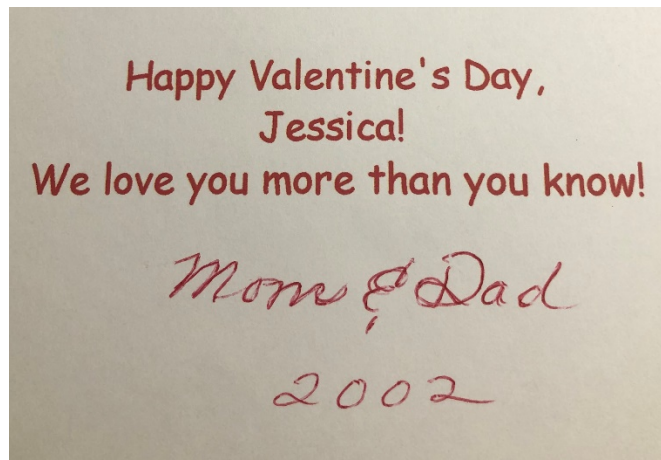 Happy Valentine's Day,
Jessica!
We love you more than you know!
Mom & Dad
2002